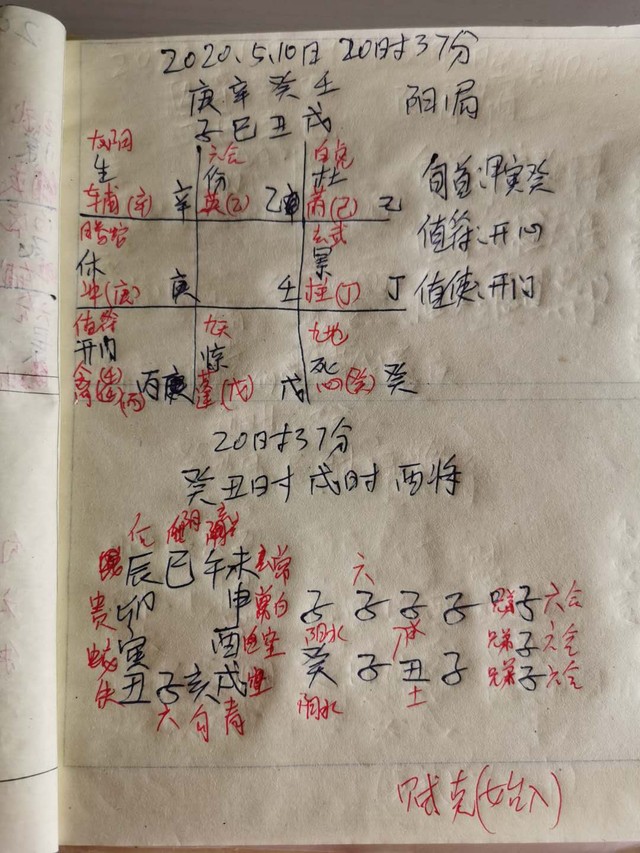 2020.5.10日 20时37分
庚辛癸壬 阳1局
子巳丑戌
太阴 六合 白虎
生 杜
辅(辛) 辛 英(乙) 乙 芮(己) 己
旬首:甲寅癸
螣蛇 玄武
休 景
冲(庚) 庚 壬 柱(丁) 丁
值符:开心
值使:开门
值符 九天 九地
开门 惊 死
禽 丙 蓬(戊) 戊 心(癸) 癸
20时37分
癸丑日寸 戌时 酉将
辰巳午未 常 六
贵 卯 申 白 子 子 子 子 兄弟 子 六合
阳水 兄弟 子 六合
寅 酉 空 癸 子 丑 子 兄弟 子 六合
丑子亥戌 阳水 土
六 勾 青
贼克(始入)